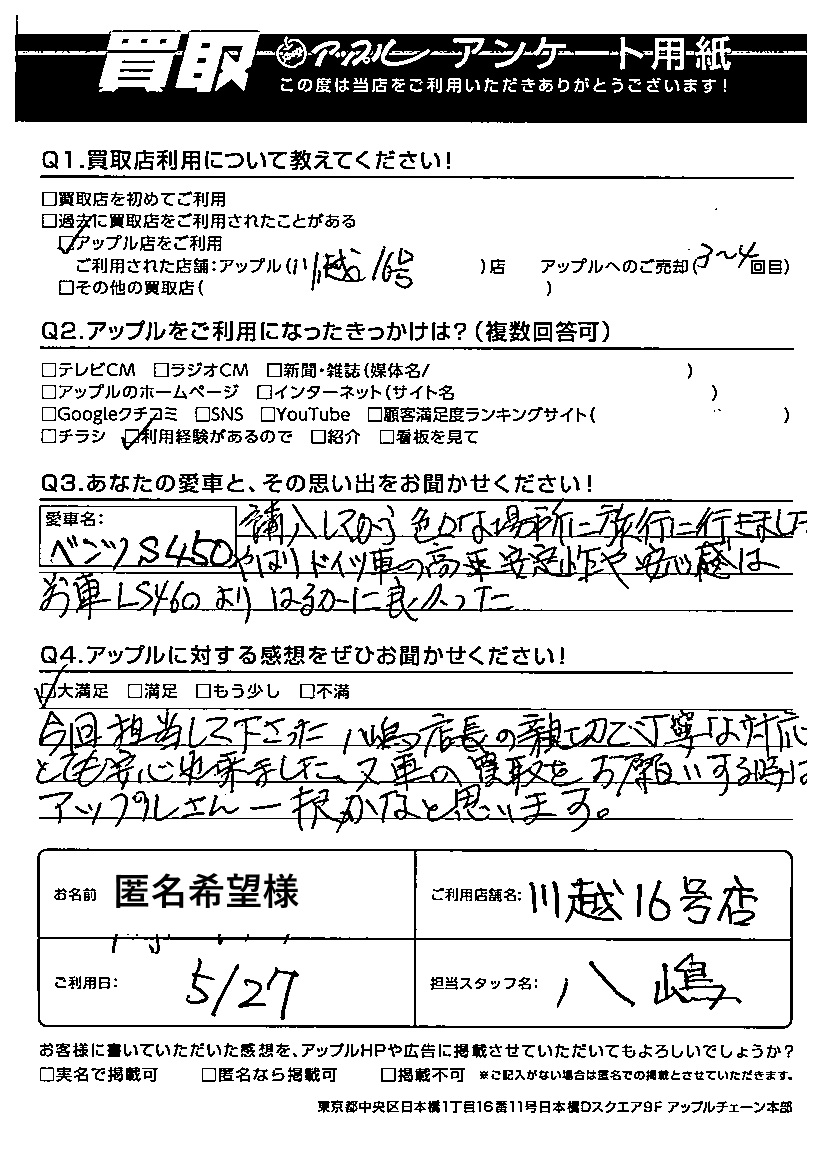 買取 アップル アンケート用紙
この度は当店をご利用いただきありがとうございます!
Q1.買取店利用について教えてください!
□買取店を初めてご利用
□過去に買取店をご利用されたことがある
☑アップル店をご利用
ご利用された店舗:アップル(川越16号 )店 アップルへのご売却(3〜4回目)
□その他の買取店( )
Q2.アップルをご利用になったきっかけは?(複数回答可)
□テレビCM □ラジオCM □新聞・雑誌(媒体名/ )
□アップルのホームページ □インターネット(サイト名 )
□Googleクチコミ □SNS □YouTube □顧客満足度ランキングサイト( )
□チラシ ☑利用経験があるので □紹介 □看板を見て
Q3.あなたの愛車と、その思い出をお聞かせください!
愛車名:
ベンツS450 購入してから色々な場所に旅行に行きました
やはりドイツ車の高速安定性や安心感は
お車LS460よりはるかに良かった
Q4.アップルに対する感想をぜひお聞かせください!
☑大満足 □満足 □もう少し □不満
今回担当して下さった八嶋店長の親切で丁寧な対応
とても安心出来ました、又車の買取をお願いする時は
アップルさん一択かなと思います。
お名前 匿名希望様 ご利用店舗名:川越16号店
ご利用日: 5/27 担当スタッフ名: 八嶋
お客様に書いていただいた感想を、アップルHPや広告に掲載させていただいてもよろしいでしょうか?
□実名で掲載可 □匿名なら掲載可 □掲載不可 ※ご記入がない場合は匿名での掲載とさせていただきます。
東京都中央区日本橋1丁目16番11号日本橋Dスクエア9F アップルチェーン本部